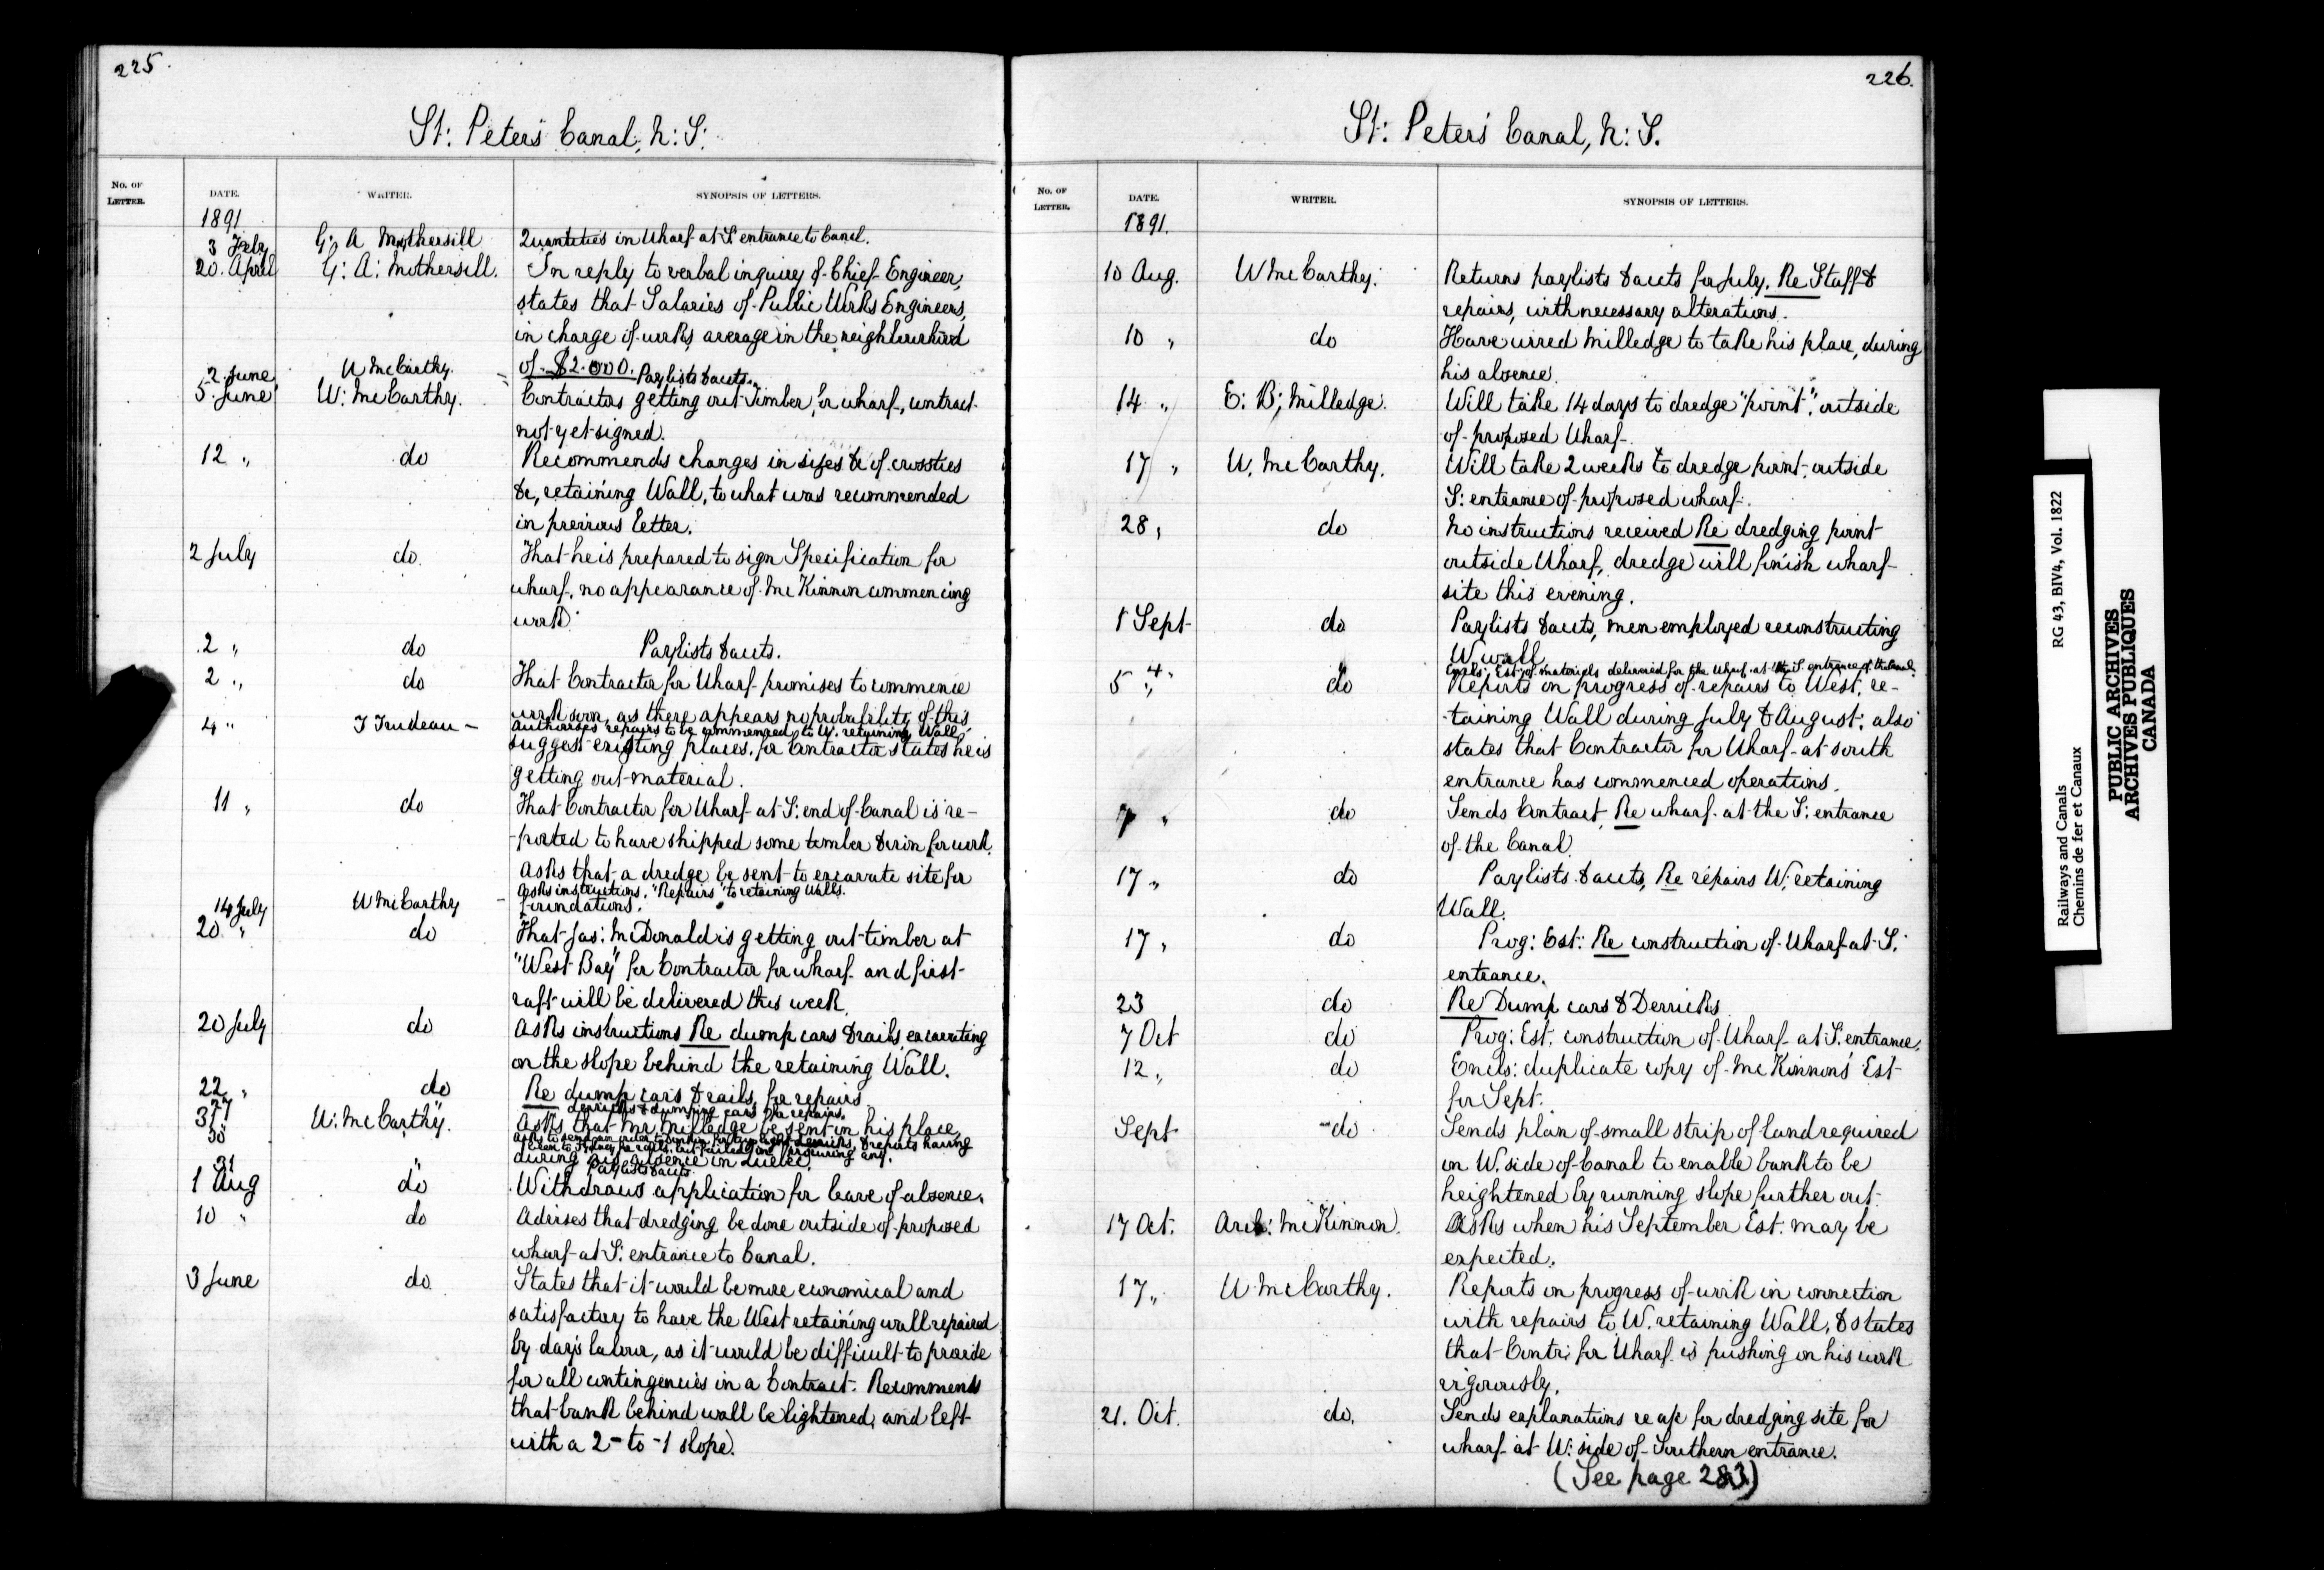 225.
St: Peters' Canal, N: S:
No. OF LETTER. DATE. WRITER. SYNOPSIS OF LETTERS.
1891
3 Feby G: A Mothersill Quantities in Wharf at S' entrance to Canal.
20. April G: A: Mothersill. In reply to verbal inquiry of Chief Engineer,
states that Salaries of Public Works Engineers,
in charge of works average in the neighbourhood
of $2.000.
2. June W McCarthy. Paylists & accts.
5. June W: McCarthy. Contractors getting out timber, for wharf, contract
not yet signed.
12 " do Recommends changes in sizes &c of crossties
&c, retaining Wall, to what was recommended
in previous letter.
2 July do. That he is prepared to sign Specification for
wharf, no appearance of McKinnon commencing
work
2 " do Paylists & accts.
2 " do That Contractor for Wharf promises to commence
work soon, as there appears no probability of this
4 " T Trudeau – Authorises repairs to be commenced to W. retaining Wall,
suggest existing places, for Contractor states he is
getting out material.
11 " do That Contractor for Wharf at S: end of Canal is re-
-ported to have shipped some timber & iron for work.
Asks that a dredge be sent to excavate site for
14 July W McCarthy – Asks instructions. "Repairs" to retaining Walls.
foundations.
20 " do That Jas: McDonald is getting out timber at
"West Bay" for Contractor for wharf and first
raft will be delivered this week.
20 July do Asks instructions Re dump cars & rails, excavating
on the slope behind the retaining Wall.
22 " do Re dump cars & rails, for repairs
27 " derricks & dumping cars for repairs.
31 W: McCarthy. Asks that Mr Milledge be sent in his place,
30
during his absence in Quebec.
31 " Paylists & accts.
1 Aug do Withdraws application for leave of absence.
10 " do Advises that dredging be done outside of proposed
wharf at S: entrance to Canal.
3 June do. States that it would be more economical and
satisfactory to have the West retaining wall repaired
by day's labour, as it would be difficult to provide
for all contingencies in a Contract. Recommends
that bank behind wall be lightened, and left
with a 2-to-1 slope.
226.
St: Peters' Canal, N: S.
No. OF LETTER. DATE. WRITER. SYNOPSIS OF LETTERS.
1891.
10 Aug. W McCarthy. Returns paylists & accts for July. Re Staff &
repairs, with necessary alterations.
10 " do Have wired Milledge to take his place, during
his absence.
14 " E: B; Milledge. Will take 14 days to dredge "point", outside
of proposed Wharf.
17 " W. McCarthy. Will take 2 weeks to dredge point, outside
S: entrance of proposed wharf.
28 " do No instructions received Re dredging point
outside Wharf, dredge will finish wharf
site this evening.
1 Sept do Paylists & accts, men employed reconstructing
W wall
4 " " Encls: Est: of materials delivered for the Wharf at the S. entrance of the Canal
5 " do Reports on progress of repairs to West, re-
-taining Wall during July & August; also
states that Contractor for Wharf at south
entrance has commenced operations.
7 " do Sends Contract, Re wharf at the S: entrance
of the Canal.
17 " do Paylists & accts, Re repairs W: retaining
Wall.
17 " do Prog: Est: Re construction of Wharf at S:
entrance.
23 do Re Dump cars & Derricks
7 Oct do Prog: Est. construction of Wharf at S: entrance.
12 " do Encls: duplicate copy of McKinnon's Est
for Sept.
Sept do Sends plan of small strip of land required
on W. side of Canal to enable bank to be
heightened by running slope further out.
17 Oct. Arch: McKinnon. Asks when his September Est. may be
expected.
17 " W McCarthy. Reports on progress of work in connection
with repairs to W. retaining Wall, & states
that Contr: for Wharf is pushing on his work
vigorously.
21. Oct. do. Sends explanations re a/c for dredging site for
wharf at W: side of Southern entrance.
(See page 283)
Railways and Canals RG 43, BIV4, Vol. 1822
Chemins de fer et Canaux
PUBLIC ARCHIVES
ARCHIVES PUBLIQUES
CANADA